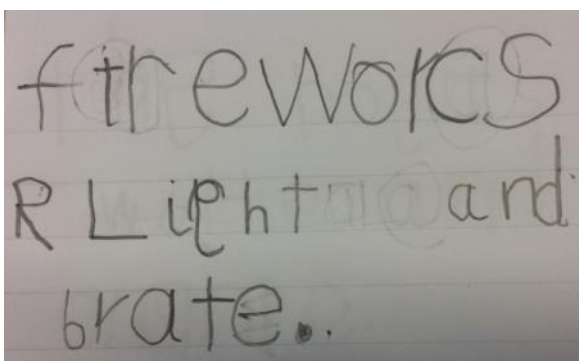 ftreworcs
R Light and
brate..